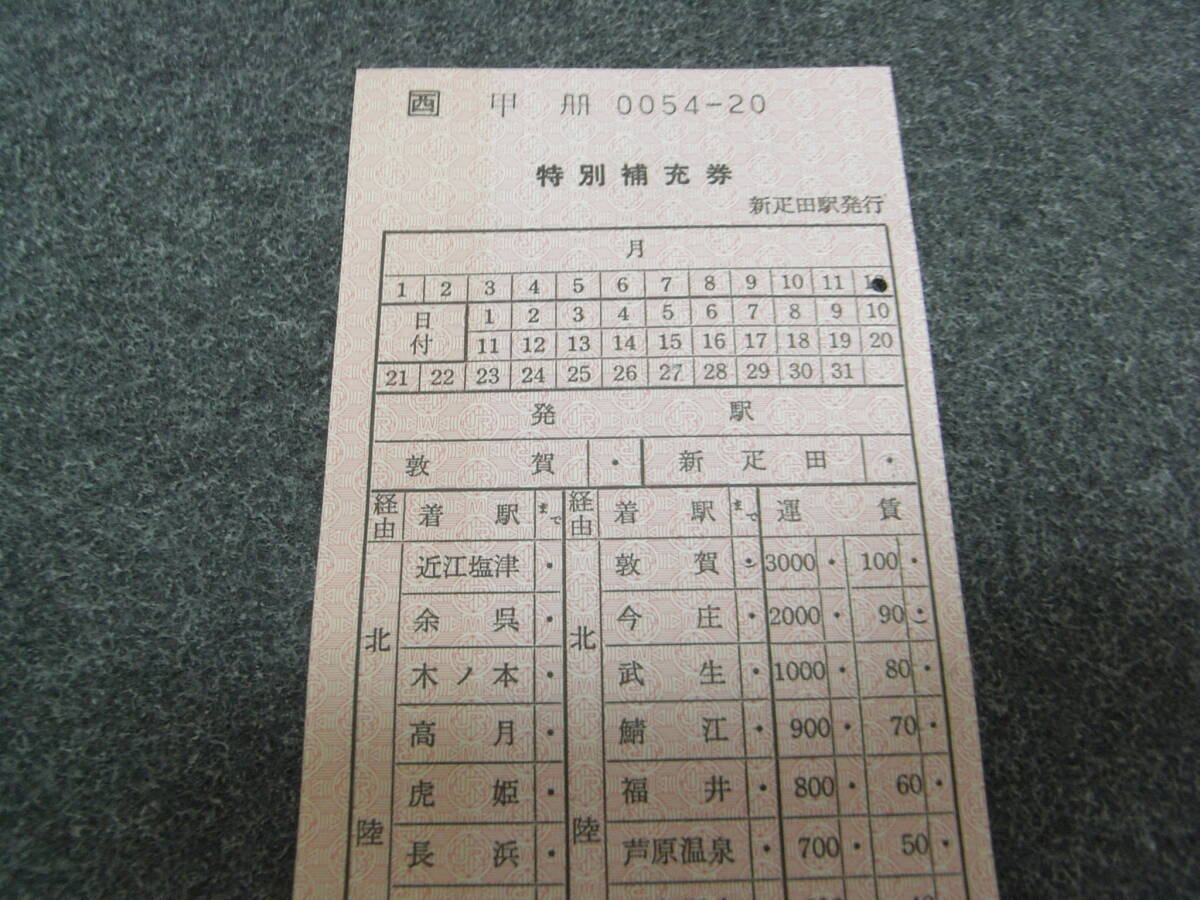 西 甲 册 0054-20
特別補充券
新疋田駅発行
月
1 2 3 4 5 6 7 8 9 10 11
日付 1 2 3 4 5 6 7 8 9 10
11 12 13 14 15 16 17 18 19 20
21 22 23 24 25 26 27 28 29 30 31
発 駅
敦賀 ・ 新疋田 ・
経由 着駅 まで 経由 着駅 まで 運賃
近江塩津 ・ 敦賀 ・ 3000 ・ 100 ・
余呉 ・ 今庄 ・ 2000 ・ 90 ・
北 木ノ本 ・ 北 武生 ・ 1000 ・ 80 ・
高月 ・ 鯖江 ・ 900 ・ 70 ・
虎姫 ・ 福井 ・ 800 ・ 60 ・
陸 長浜 ・ 陸 芦原温泉 ・ 700 ・ 50 ・